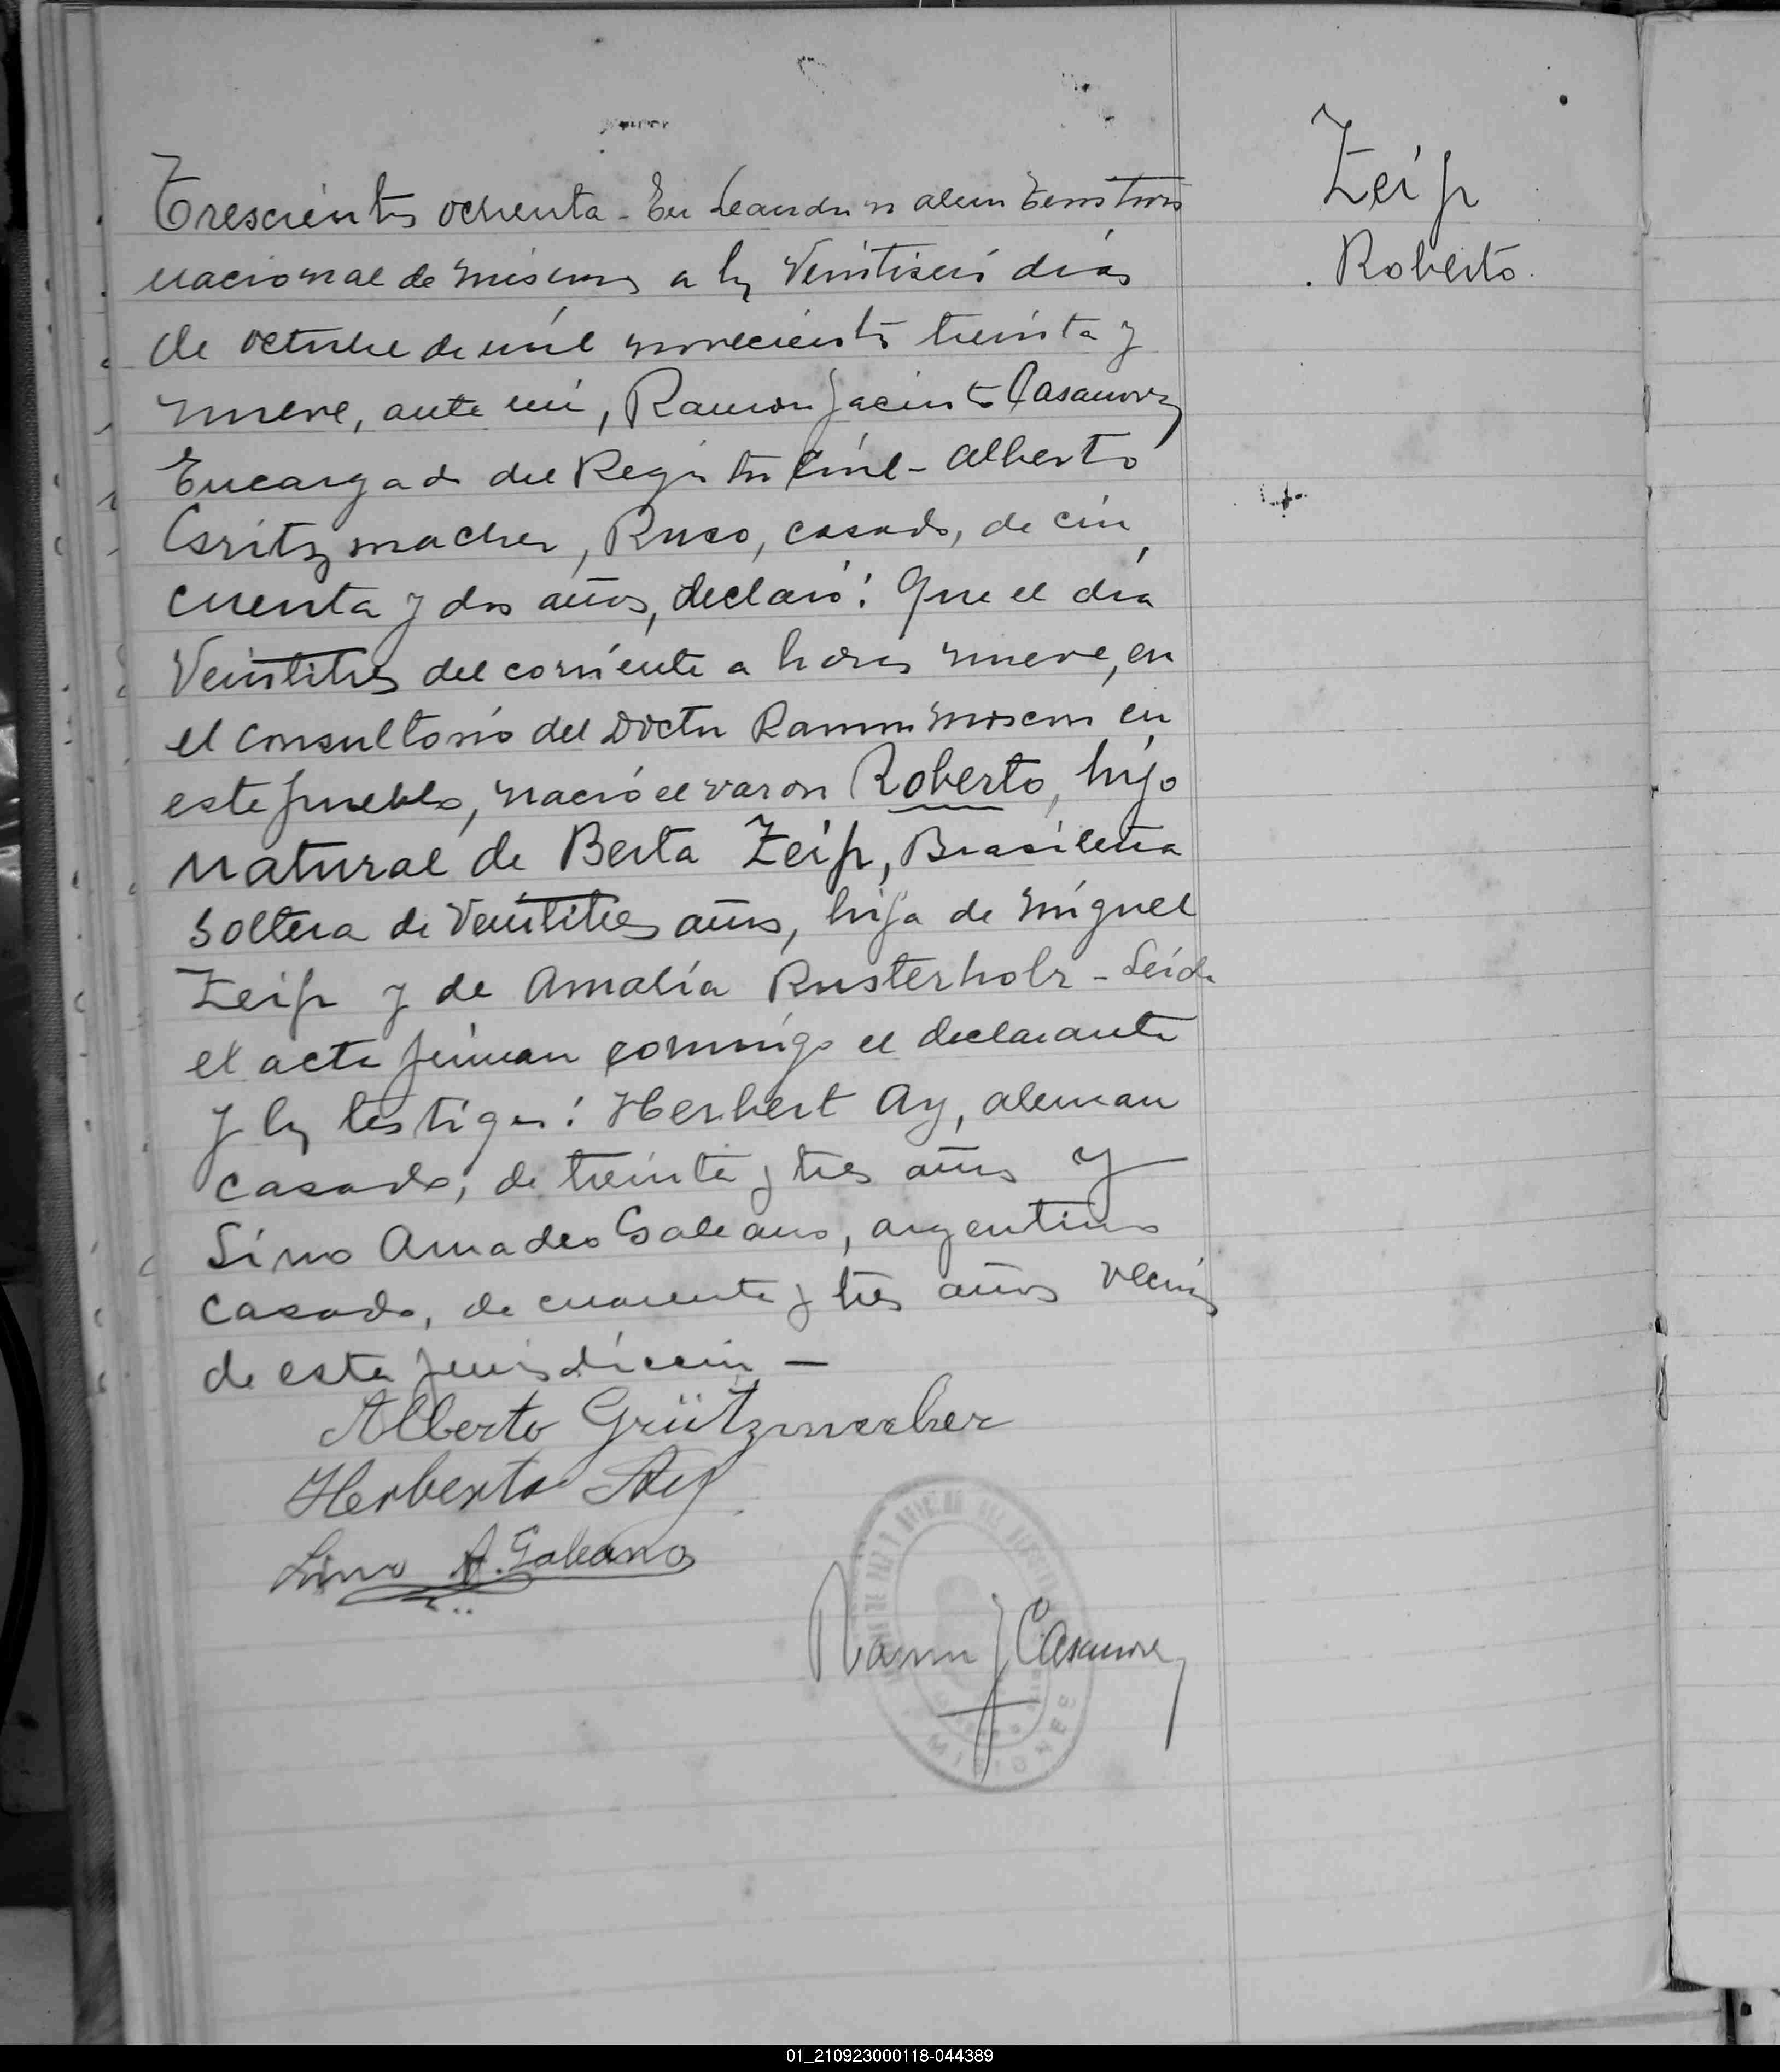 Zeip
Roberto.
Trescientos ochenta - En Leandro N Alem Territorio
nacional de Misiones a los Veintiseis dias
de octubre de mil novecientos treinta y
nueve, ante mi, Ramon Jacinto Casanova
Encargado del Registro Civil - Alberto
Gritzmacher, Ruso, casado, de cin
cuenta y dos años, declaró: Que el dia
Veintitres del corriente a horas nueve, en
el consultorio del Doctor Ramon en
este pueblo, nació el varon Roberto, hijo
natural de Berta Zeip, Brasileña
soltera de Veintitres años, hija de Miguel
Zeip y de Amalia Rusterholz - Leida
el acta firman conmigo el declarante
y los testigos: Herbert Ay, aleman
casado, de treinta y tres años y
Lino Amadeo Galeano, argentino
casado, de cuarenta y tres años vecinos
de esta jurisdiccion -
Alberto Grützmacher
Herberto Ay
Lino A. Galeano
Ramon J Casanova
MISIONES
01_210923000118-044389